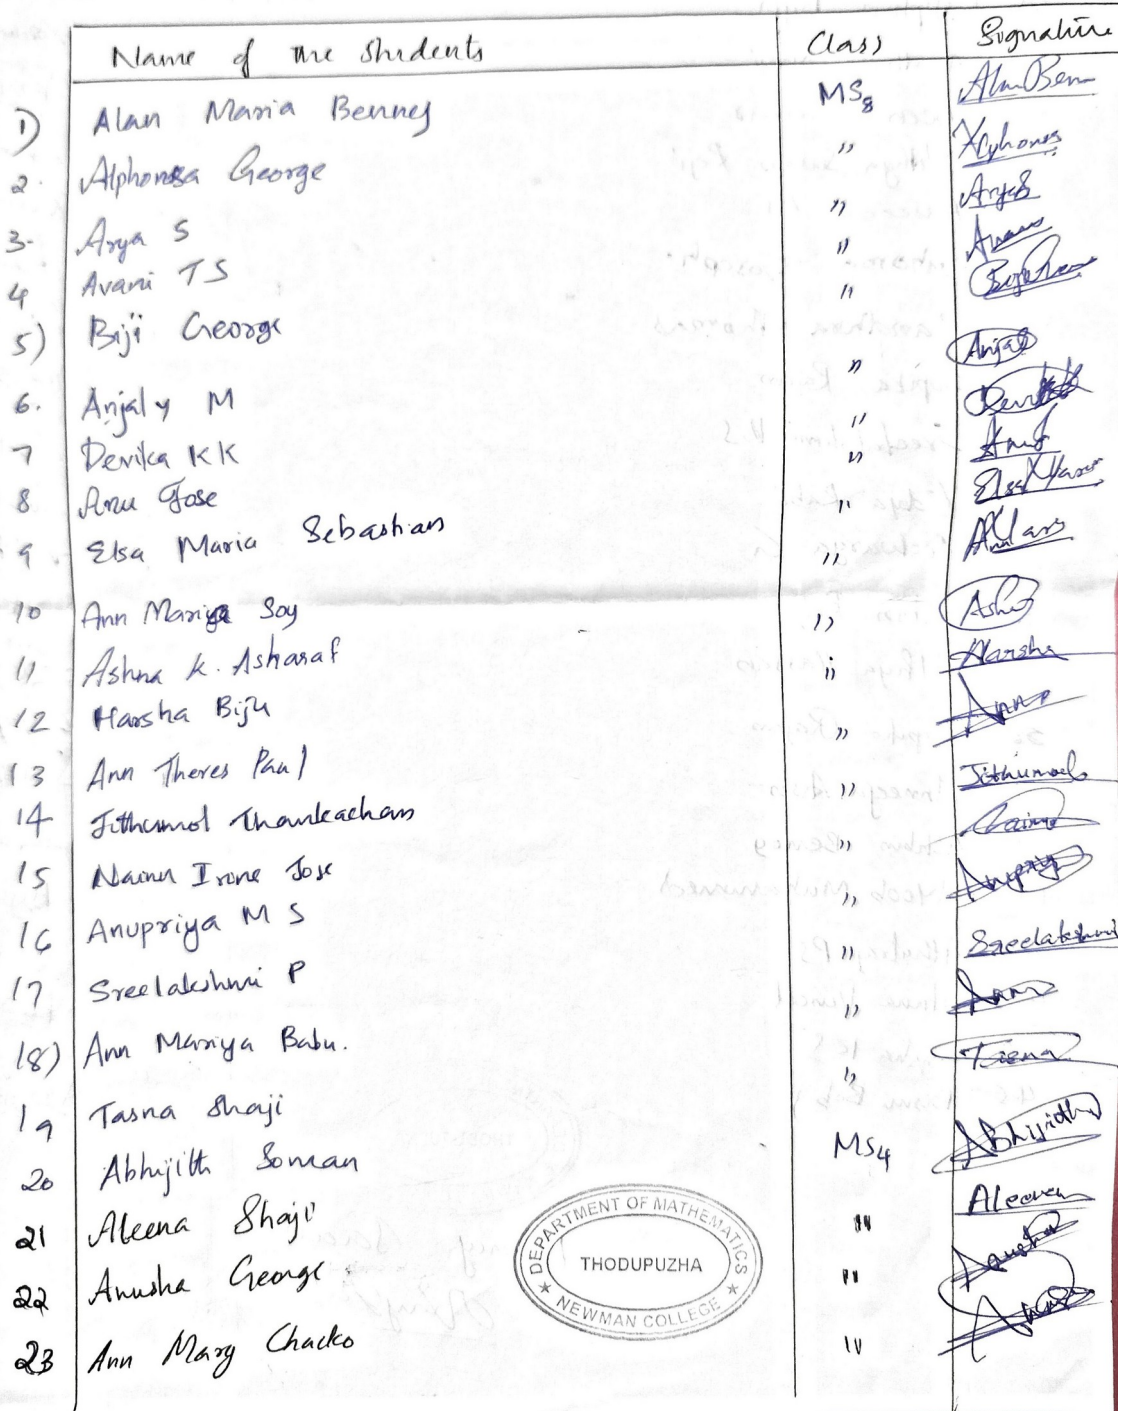 Name of the Students Class Signature
1) Alan Maria Benney MS8 Alan Ben
2. Alphonsa George " Alphonsa
3. Arya S " Arya S
4 Avani T S "
5) Biji George "
6. Anjaly M " Anjal
7 Devika K K "
8 Anu Jose " Anu
9 Elsa Maria Sebastian " Elsa
10 Ann Mariya Soy "
11 Ashna K. Asharaf " Ashn
12 Harsha Biju " Harsha
13 Ann Theres Paul " Ann
14 Jithumol Thankachan " Jithumol
15 Naina Irine Jose "
16 Anupriya M S " Anupriya
17 Sreelakshmi P " Sreelakshmi
18) Ann Mariya Babu. " Ann
19 Tasna Shaji " Tasna
20 Abhijith Soman MS4 Abhijith
21 Aleena Shaji " Aleena
22 Anusha George " Anusha
23 Ann Mary Chacko "
DEPARTMENT OF MATHEMATICS
THODUPUZHA
NEWMAN COLLEGE